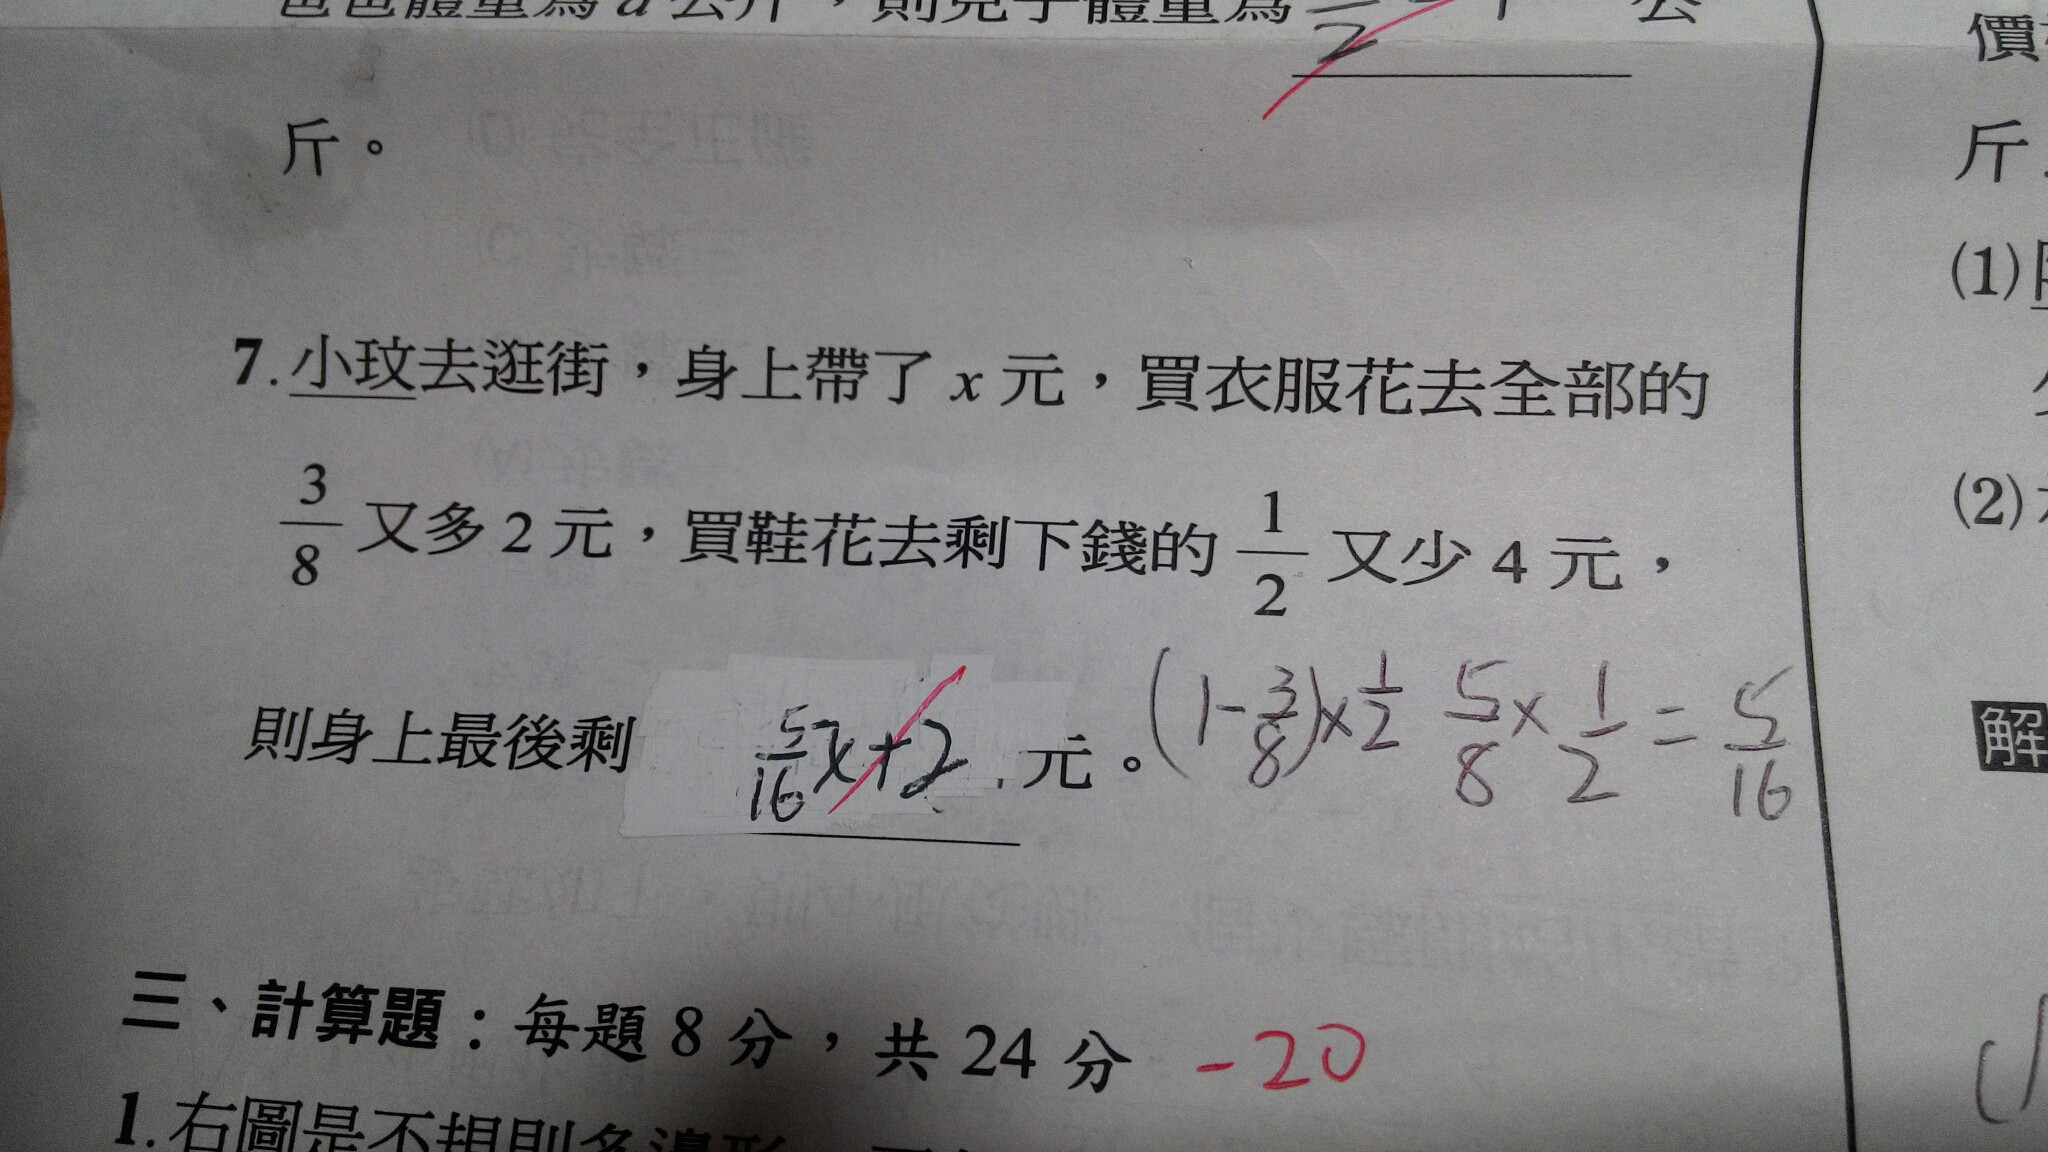 爸爸體重為 a 公斤，則兒子體重為 公
斤。
7. 小玟去逛街，身上帶了 x 元，買衣服花去全部的
3/8 又多 2 元，買鞋花去剩下錢的 1/2 又少 4 元，
則身上最後剩 5/16 x+2 元。 (1-3/8)×1/2 5/8×1/2=5/16
三、計算題：每題 8 分，共 24 分 -20
1. 右圖是不規則多邊形
價
斤
(1)
(2)
解